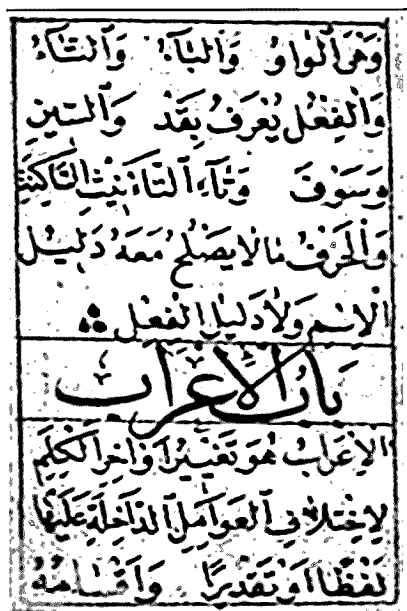 وَهِيَ الْوَاوُ وَالْبَاءُ وَالتَّاءُ
وَالْفِعْلُ يُعْرَفُ بِقَدْ وَالسِّينِ
وَسَوْفَ وَتَاءِ التَّأْنِيثِ السَّاكِنَةِ
وَالْحَرْفُ مَا لَا يَصْلُحُ مَعَهُ دَلِيلُ
الْاِسْمِ وَلَا دَلِيلُ الْفِعْلِ
بَابُ الْإِعْرَابِ
الْإِعْرَابُ هُوَ تَغْيِيرُ أَوَاخِرِ الْكَلِمِ
لِاخْتِلَافِ الْعَوَامِلِ الدَّاخِلَةِ عَلَيْهَا
لَفْظًا أَوْ تَقْدِيرًا وَأَقْسَامُهُ